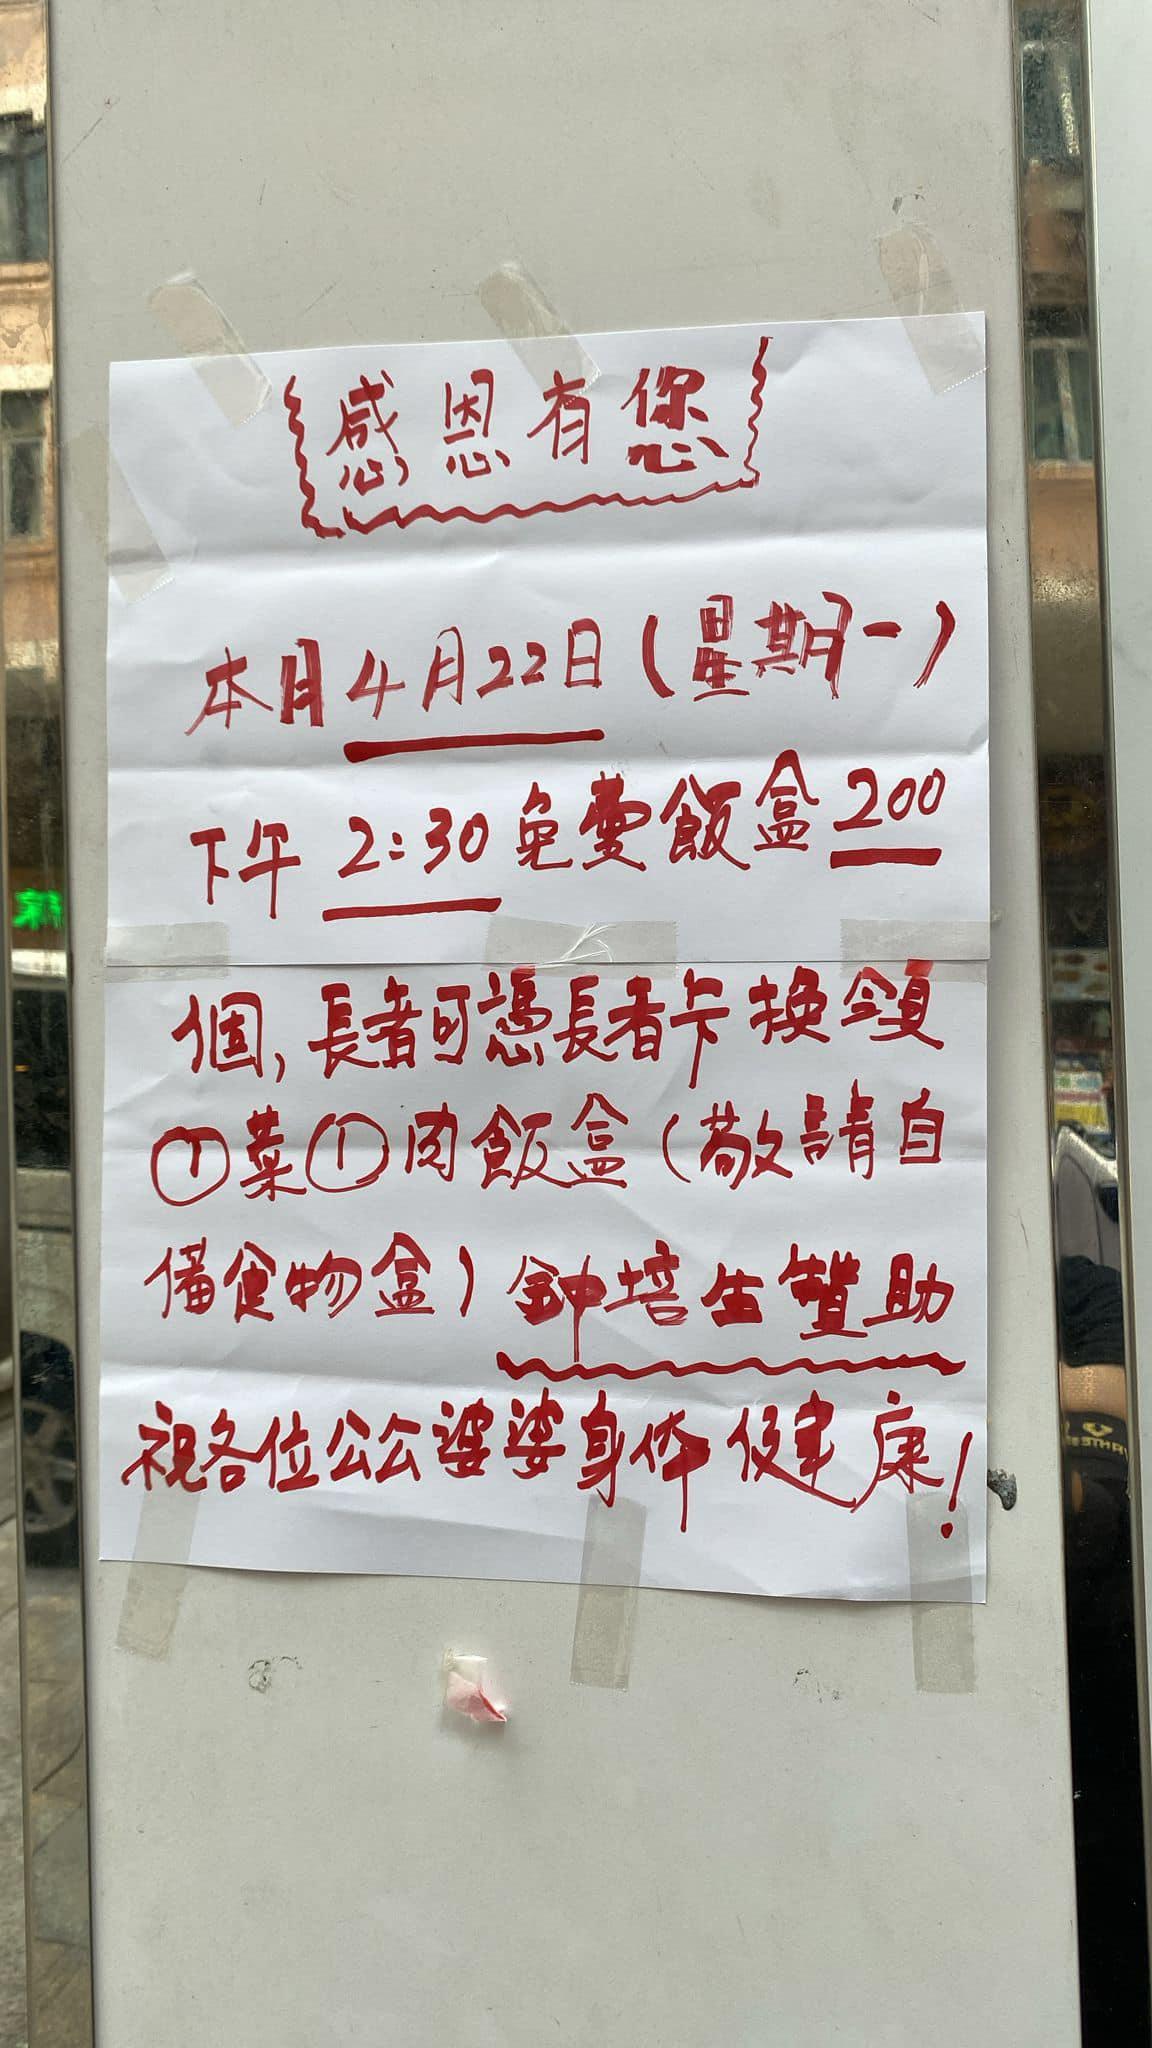 感恩有您
本月4月22日(星期一)
下午 2:30 免費飯盒 200
個,長者可憑長者卡換領
①菜①肉飯盒(敬請自
備食物盒) 鈡培生贊助
祝各位公公婆婆身体健康!